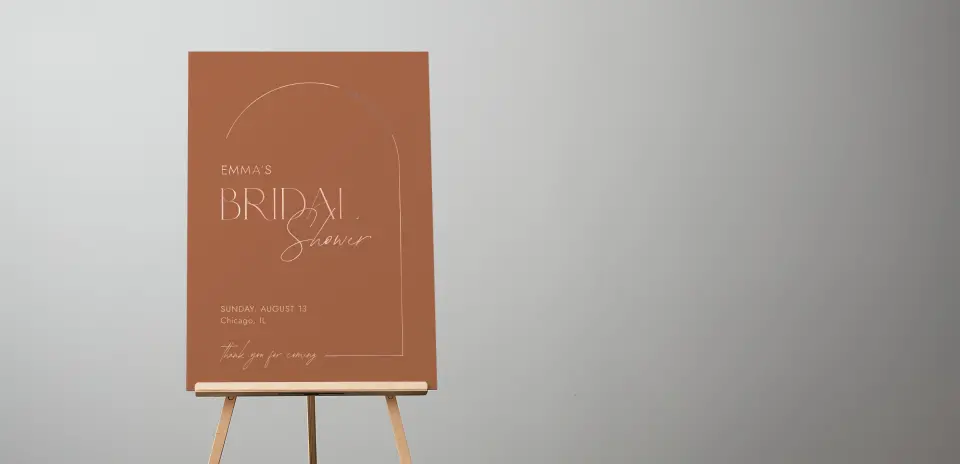 EMMA'S
BRIDAL
Shower
SUNDAY, AUGUST 13
Chicago, IL
thank you for coming